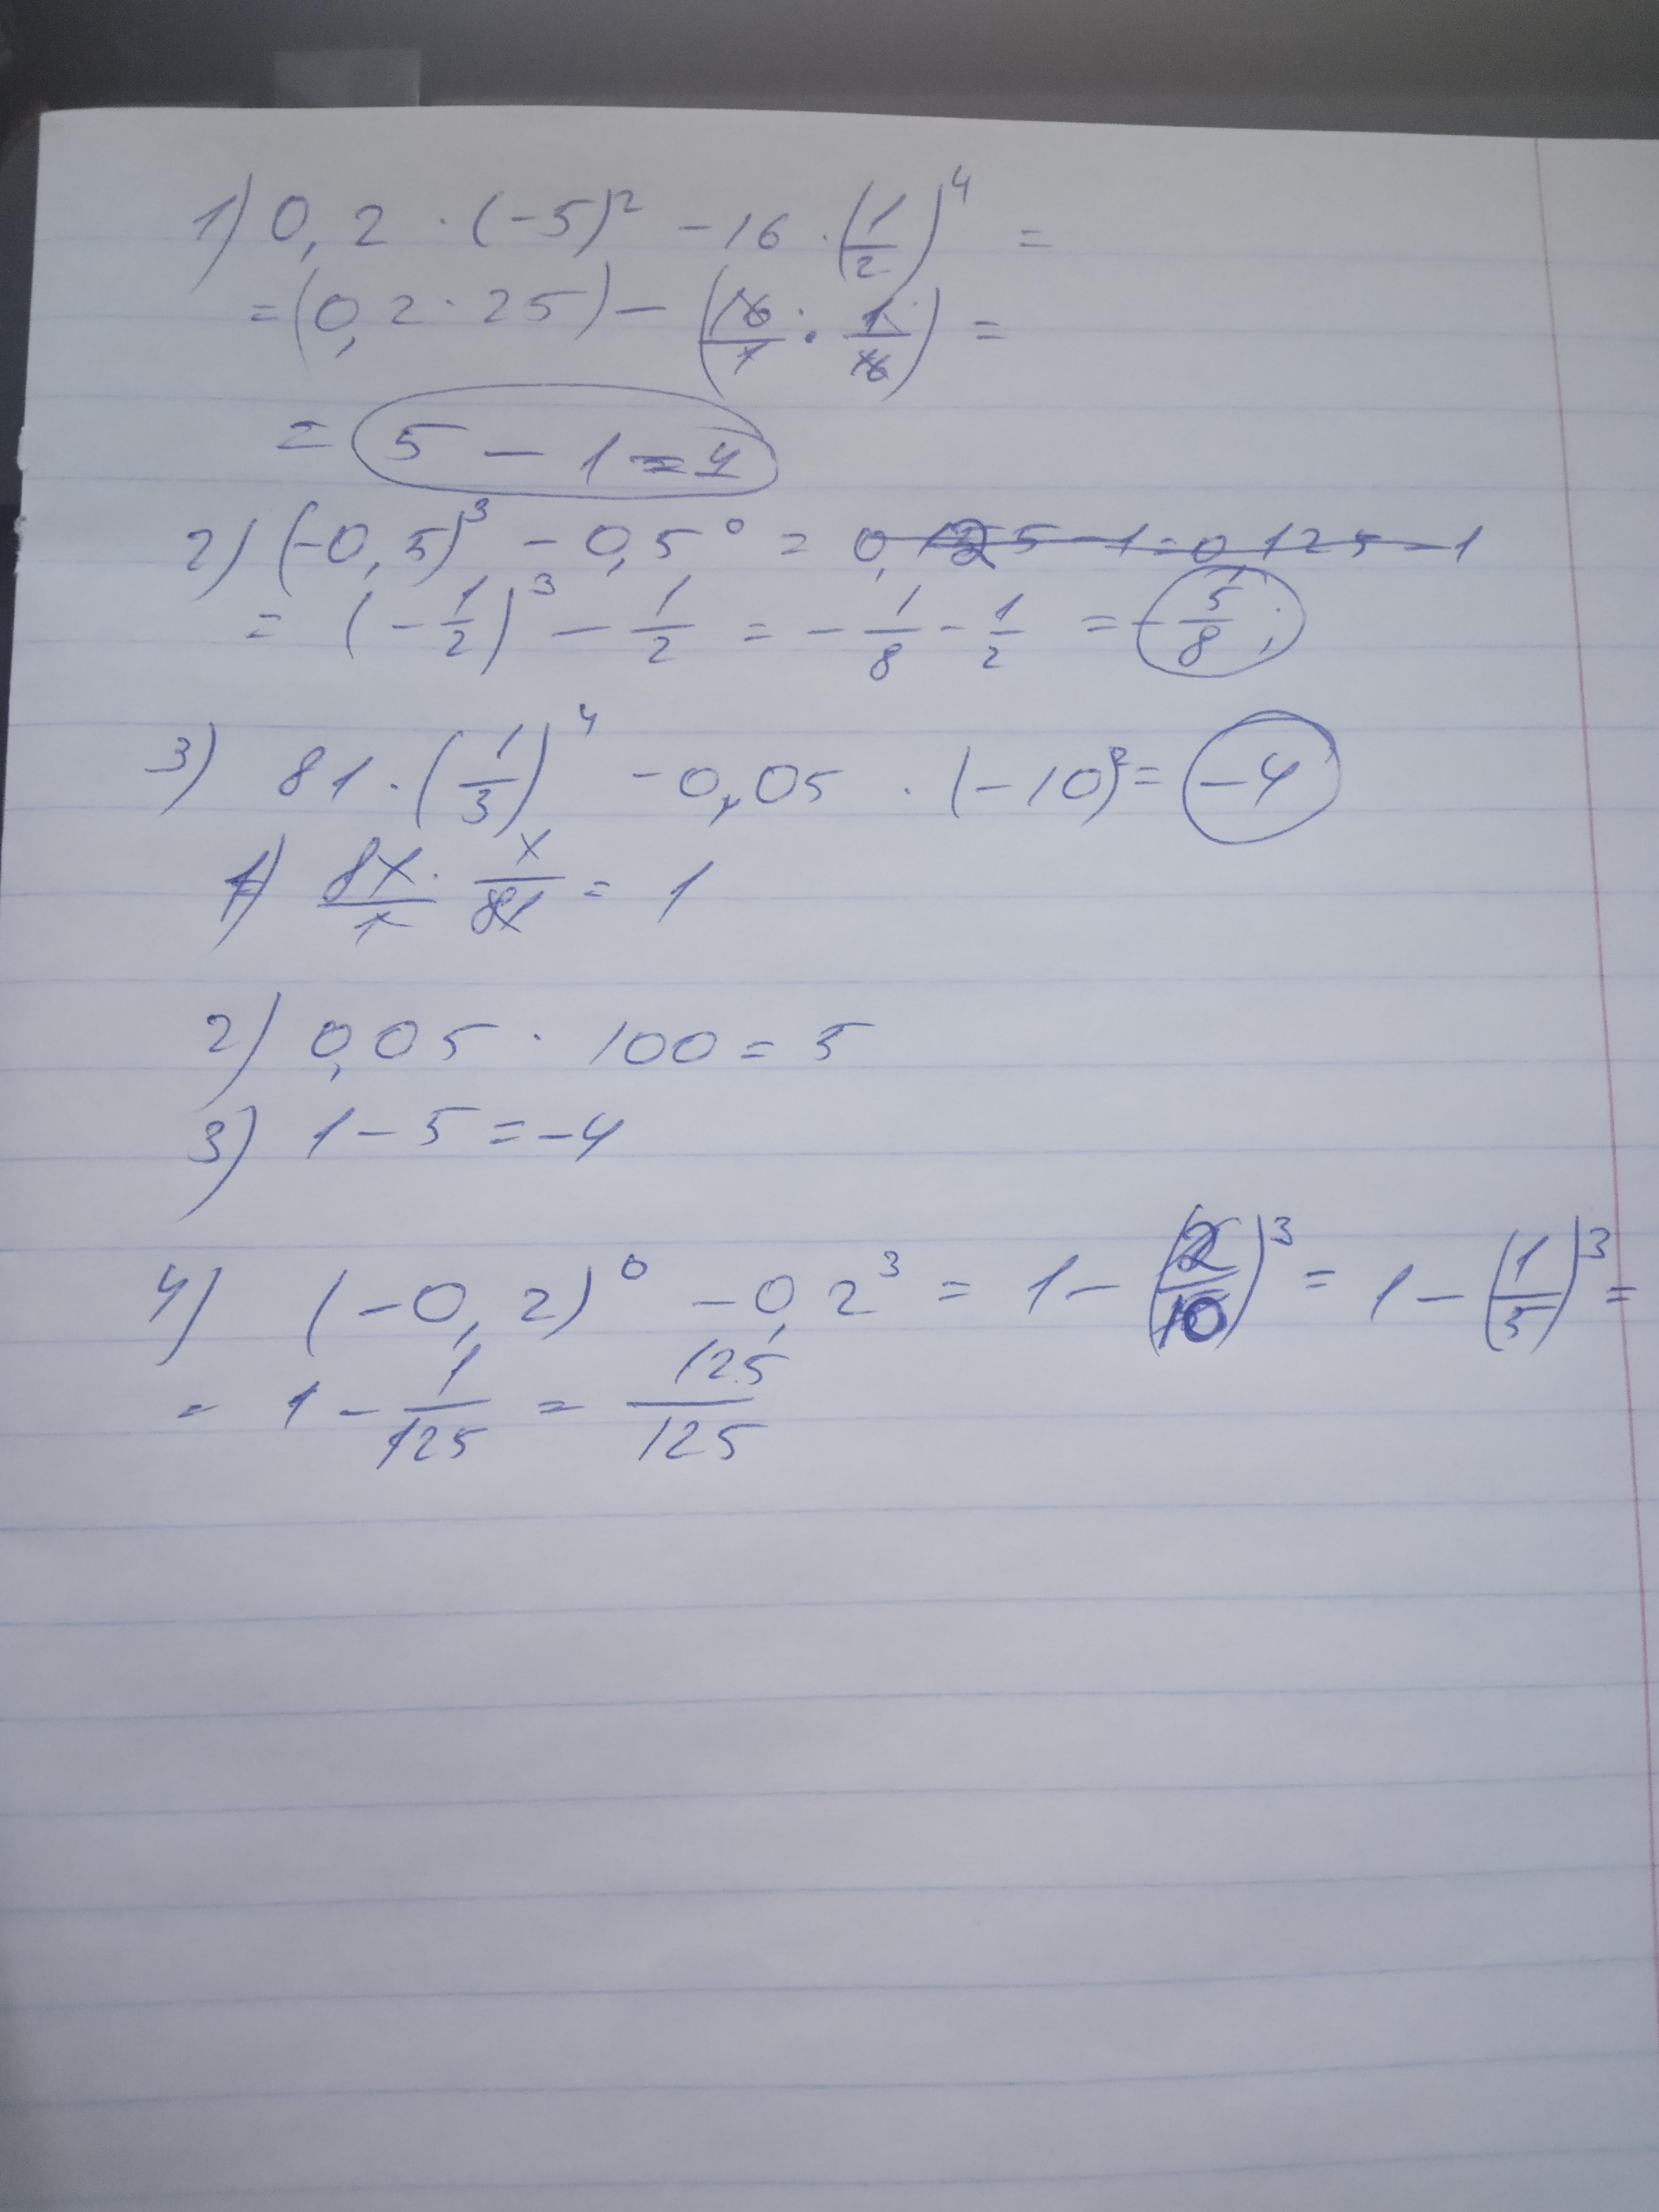 1) 0,2 · (-5)² - 16 · (1/2)⁴ =
= (0,2 · 25) - (16/1 · 1/16) =
= 5 - 1 = 4
2) (-0,5)³ - 0,5⁰ = 0,125 - 1 = 0,125 - 1
= (-1/2)³ - 1/2 = -1/8 - 1/2 = -5/8;
3) 81 · (1/3)⁴ - 0,05 · (-10)² = -4
1) 81/1 · 1/81 = 1
2) 0,05 · 100 = 5
3) 1 - 5 = -4
4) (-0,2)⁰ - 0,2³ = 1 - (2/10)³ = 1 - (1/5)³ =
= 1 - 1/125 = 125/125